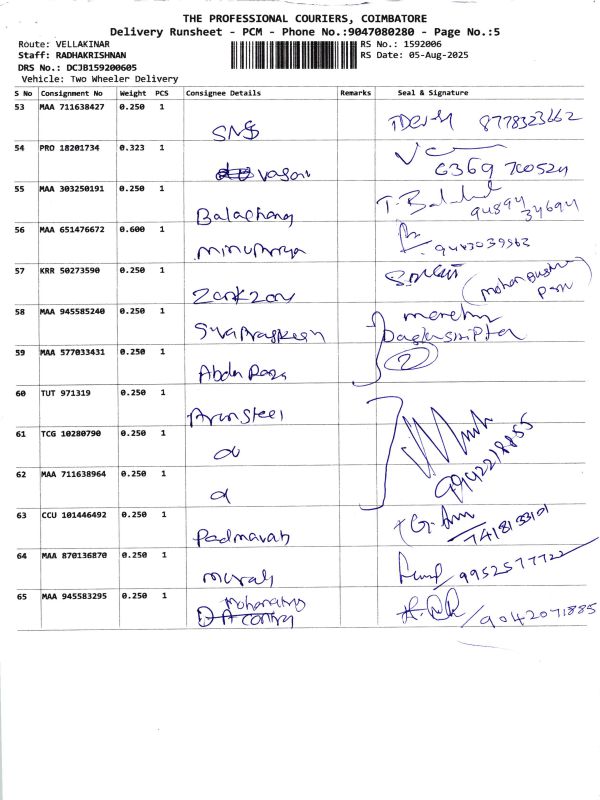 THE PROFESSIONAL COURIERS, COIMBATORE
Delivery Runsheet - PCM - Phone No.:9047080280 - Page No.:5
Route: VELLAKINAR RS No.: 1592006
Staff: RADHAKRISHNAN RS Date: 05-Aug-2025
DRS No.: DCJB159200605
Vehicle: Two Wheeler Delivery
S No Consignment No Weight PCS Consignee Details Remarks Seal & Signature
53 MAA 711638427 0.250 1 SNS 8778323662
54 PRO 18201734 0.323 1 vasan 6369 760524
55 MAA 303250191 0.250 1 Balachang 94894 34694
56 MAA 651476672 0.600 1 9443039962
57 KRR 50273590 0.250 1 Zonkzon
58 MAA 945585240 0.250 1
59 MAA 577033431 0.250 1 2
60 TUT 971319 0.250 1 Arun Steel
61 TCG 10280790 0.250 1 9942218855
62 MAA 711638964 0.250 1
63 CCU 101446492 0.250 1 Padmavath 7418133101
64 MAA 870136870 0.250 1 murali 9952577722
65 MAA 945583295 0.250 1 9042071885